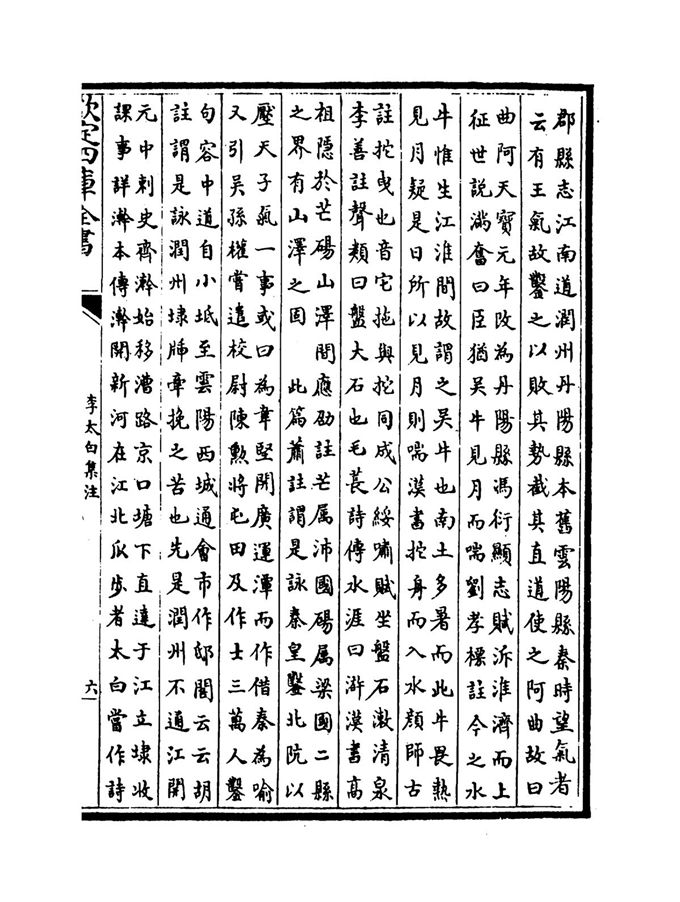 郡縣志江南道潤州丹陽縣本舊雲陽縣秦時望氣者
云有王氣故鑿之以敗其勢截其直道使之阿曲故曰
曲阿天寳元年改為丹陽縣馮衍顯志賦泝淮濟而上
征世說滿奮曰臣猶吳牛見月而喘劉孝標註今之水
牛惟生江淮間故謂之吳牛也南土多暑而此牛畏熱
見月疑是日所以見月則喘漢書拕身而入水顔師古
註拕曳也音它拖與拕同成公綏嘯賦坐盤石漱清泉
李善註聲類曰盤大石也毛萇詩傳水涯曰滸漢書高
祖隱於芒碭山澤間應劭註芒属沛國碭属梁國二縣
之界有山澤之固 此篇蕭註謂是詠秦皇鑿北阬以
壓天子氣一事或曰為韋堅開廣運潭而作借秦為喻
又引吳孫權嘗遣校尉陳勲將屯田及作士三萬人鑿
句容中道自小坻至雲陽西城通會市作邸閣云云胡
註謂是詠潤州埭牐牽挽之苦也先是潤州不通江開
元中刺史齊澣始移漕路京口塘下直達于江立埭收
課事詳澣本傳澣開新河在江北瓜步者太白當作詩
欽定四庫全書
李太白集注
六